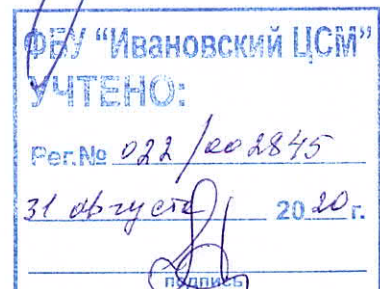 ФБУ "Ивановский ЦСМ"
УЧТЕНО:
Рег.№ 022/002845
31 августа 2020 г.
подпись